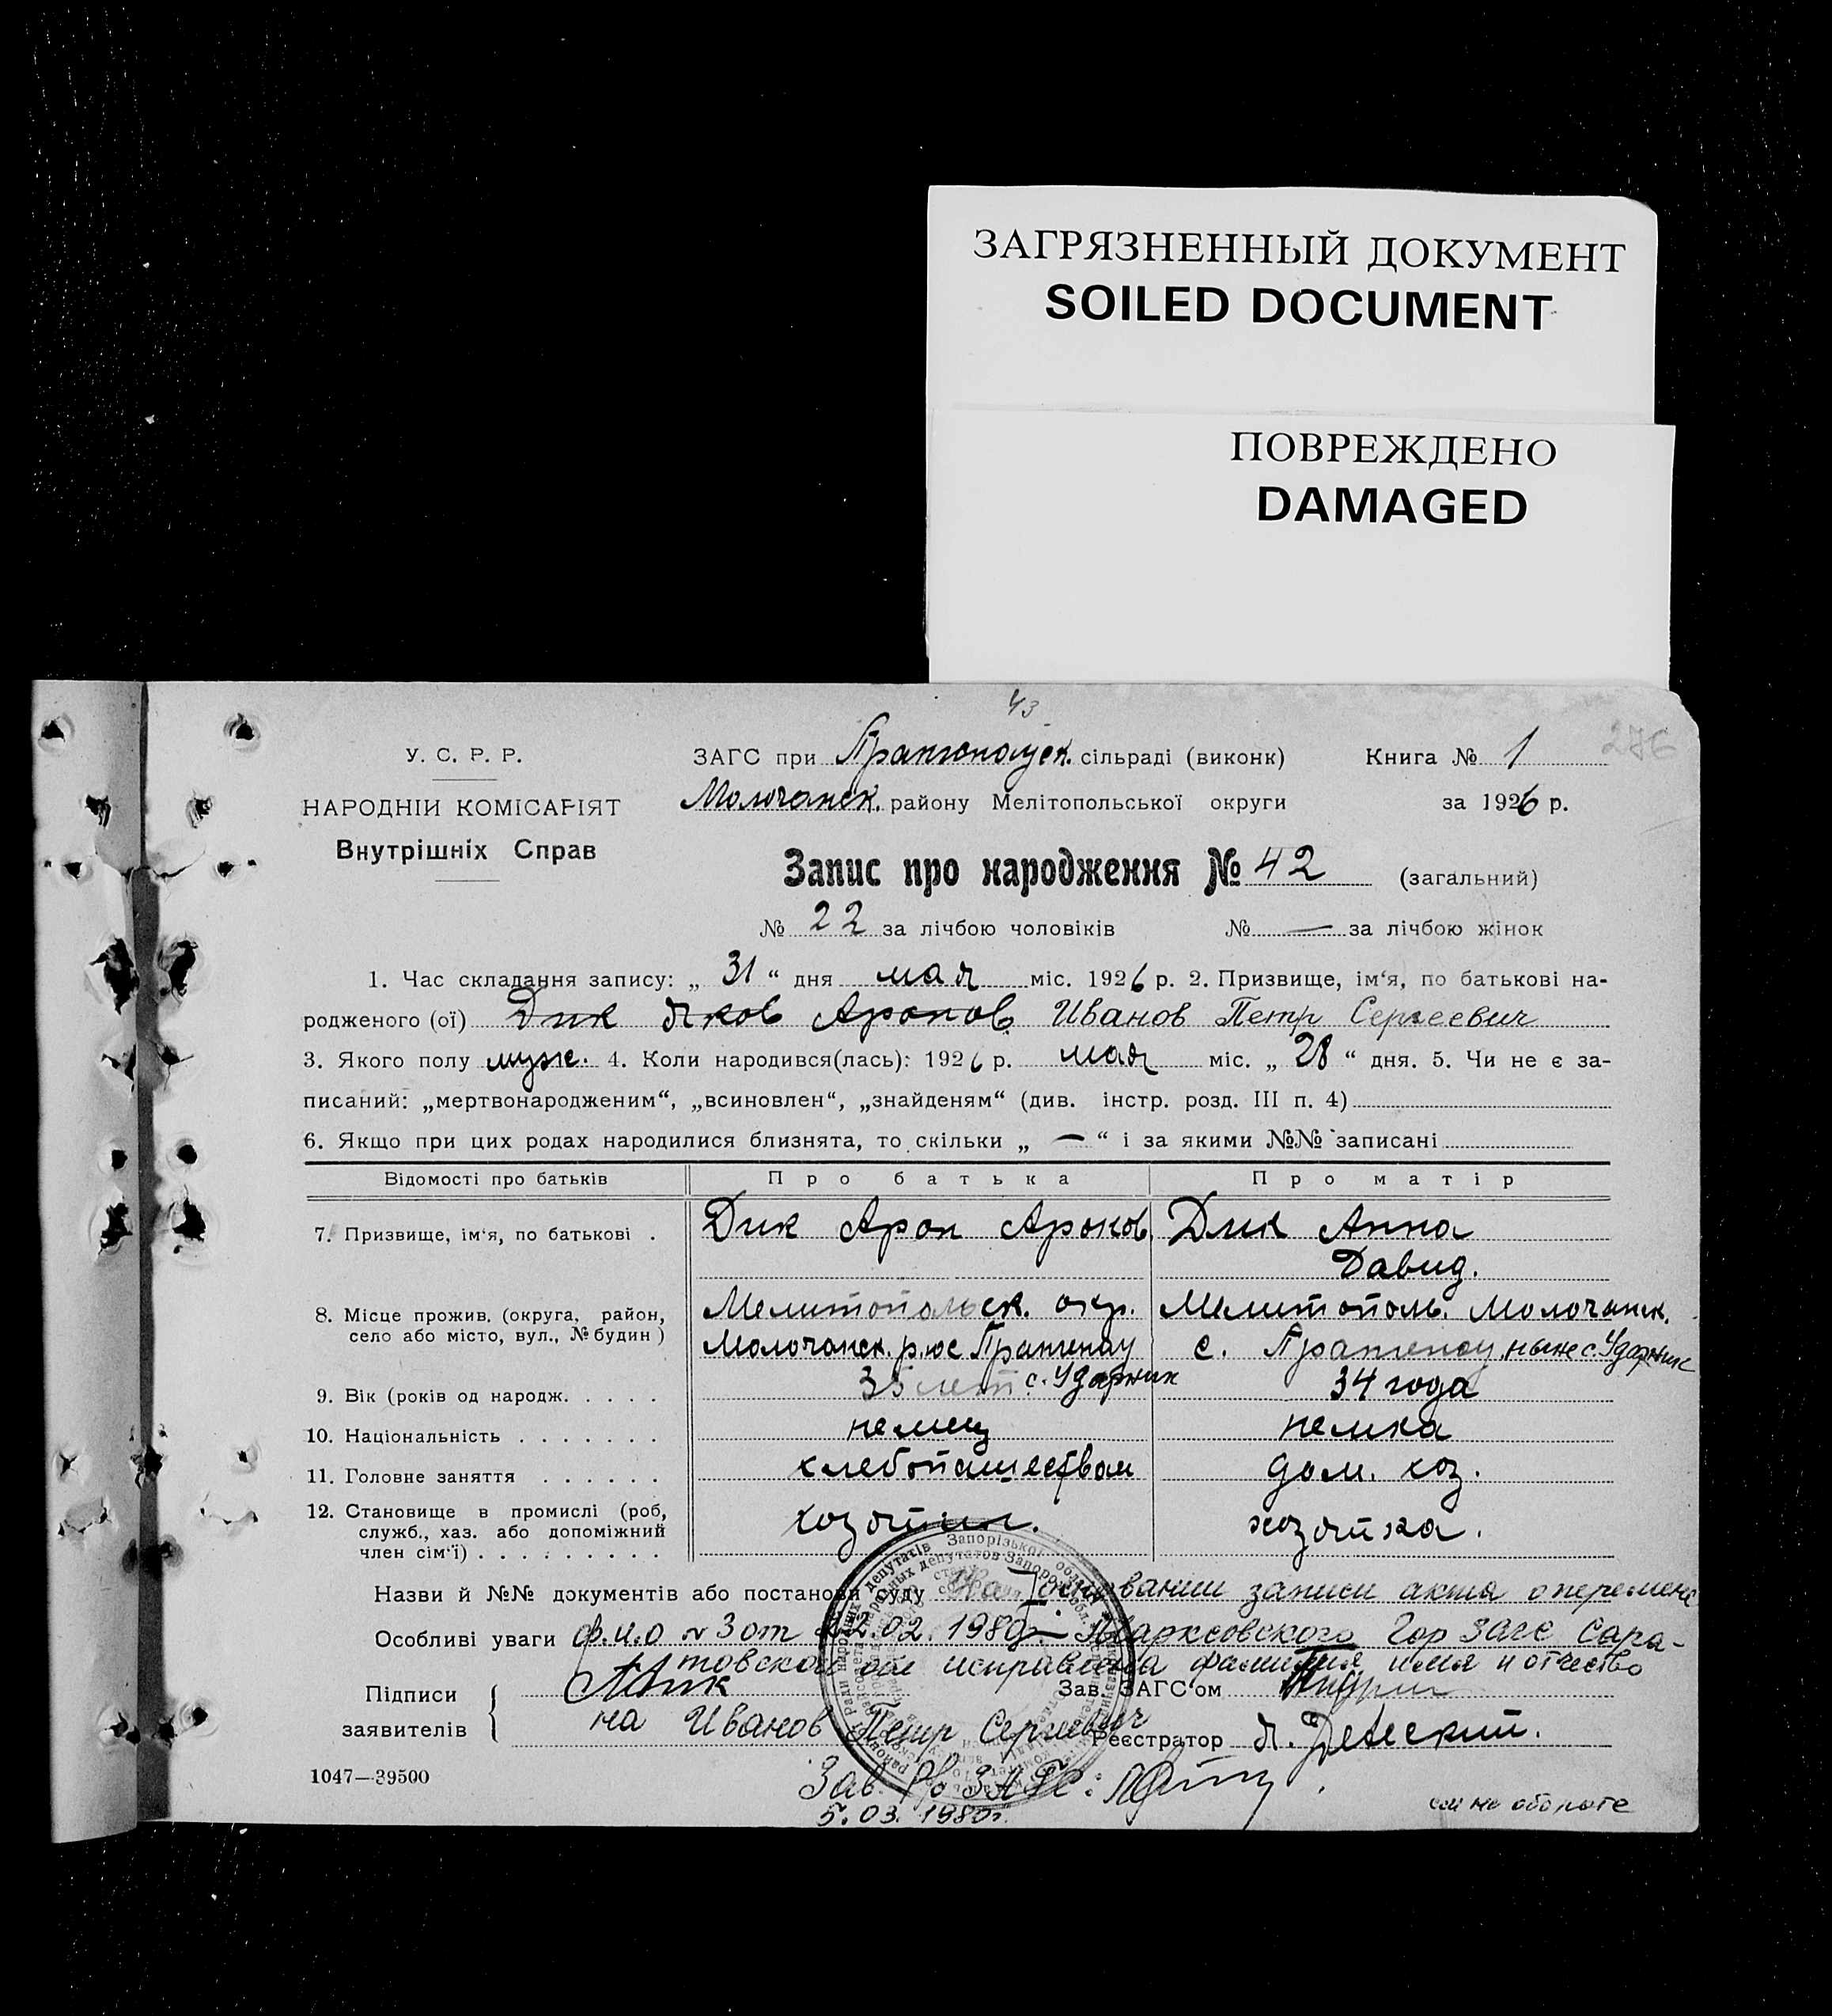 ЗАГРЯЗНЕННЫЙ ДОКУМЕНТ
SOILED DOCUMENT
ПОВРЕЖДЕНО
DAMAGED
43
276
У. С. Р. Р.
НАРОДНІЙ КОМІСАРІЯТ
Внутрішніх Справ
ЗАГС при сільраді (виконк) Книга № 1
Молочанск. району Мелітопольської округи за 1926 р.
Запис про народження № 42 (загальний)
№ 22 за лічбою чоловіків № — за лічбою жінок
1. Час складання запису: „ 31 “ дня мая міс. 1926 р. 2. Призвище, ім‘я, по батькові на-
родженого (ої) Дик Яков Аронов. Иванов Петр Сергеевич
3. Якого полу муж. 4. Коли народився(лась): 1926 р. мая міс. „ 28 “ дня. 5. Чи не є за-
писаний: „мертвонародженим“, „всиновлен“, „знайденям“ (див. інстр. розд. III п. 4)
6. Якщо при цих родах народилися близнята, то скільки „ — “ і за якими №№ записані
Відомості про батьків Про батька Про матір
7. Призвище, ім‘я, по батькові . Дик Арон Аронов. Дик Анна
Давид.
8. Місце прожив. (округа, район, село або місто, вул., № будин) Мелитопольск. окр. Мелитополь. Молочанск.
Молочанск. р. Прангенау с. Прангенау, ныне с. Ударник
9. Вік (років од народж. . . . . 35 лет с. Ударник 34 года
10. Національність . . . . . . . немец немка
11. Головне заняття . . . . . . хлебопашеством дом. хоз.
12. Становище в промислі (роб, служб., хаз. або допоміжний член сім‘ї) . . . . . . . . . хозяин. хозяйка.
Назви й №№ документів або постанови суду На основании записи акта о перемене
Особливі уваги ф.и.о № 3 от 22.02.1980г. Марксовского Гор ЗАГС Сара-
товской обл исправлена фамилия имя и отчество
Підписи заявителів { ADик Зав. ЗАГС‘ом
на Иванов Петр Сергеевич Реєстратор
1047—39500
Зав. р/о ЗАГС:
5.03.1980г.
см на обороте